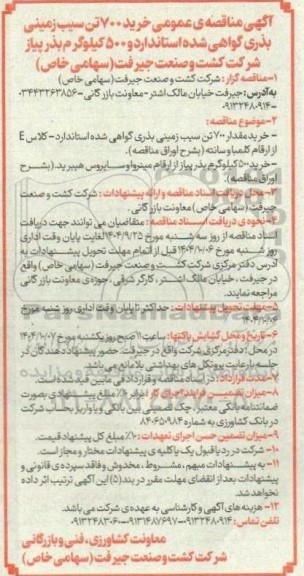 آگهی مناقصه ی عمومی خرید ۷۰۰ تن سیب زمینی
بذری گواهی شده استاندارد و ۵۰۰ کیلوگرم بذر پیاز
شرکت کشت و صنعت جیرفت (سهامی خاص)
۱- مناقصه گزار: شرکت کشت و صنعت جیرفت (سهامی خاص)
به آدرس: جیرفت خیابان مالک اشتر - معاونت بازرگانی - ۰۳۴۴۳۲۶۳۸۵۶
- ۰۹۱۳۲۴۸۰۹۱۴
۲- موضوع مناقصه:
- خرید مقدار ۷۰۰ تن سیب زمینی بذری گواهی شده استاندارد - کلاس E
از ارقام کلمبا و سانته (بشرح اوراق مناقصه).
- خرید ۵۰۰ کیلوگرم بذر پیاز از ارقام مینروا و سایروس هیبرید. (بشرح
اوراق مناقصه).
۳- محل دریافت اسناد مناقصه و ارائه پیشنهادات: شرکت کشت و صنعت
جیرفت (سهامی خاص) معاونت بازرگانی.
۴- نحوه ی دریافت اسناد مناقصه: متقاضیان می توانند جهت دریافت
اسناد مناقصه از روز سه شنبه مورخ ۱۴۰۴/۹/۲۵ لغایت پایان وقت اداری
روز شنبه مورخ ۱۴۰۴/۱۰/۰۶ قبل از اتمام مهلت تحویل پیشنهادات به
آدرس دفتر مرکزی شرکت کشت و صنعت جیرفت (سهامی خاص) واقع
در جیرفت، خیابان مالک اشتر، کارگر شرقی، حوزه ی معاونت بازرگانی
مراجعه نمایند.
۵- مهلت تحویل پیشنهادات: حداکثر تا پایان وقت اداری روز شنبه مورخ
۱۴۰۴/۱۰/۰۶
۶- تاریخ و محل گشایش پاکتها: ساعت ۱۱ صبح روز یکشنبه مورخ ۱۴۰۴/۱۰/۰۷
در محل: دفتر مرکزی شرکت واقع در جیرفت. حضور پیشنهاد دهندگان در
جلسه با رعایت پروتکل های بهداشتی بلامانع می باشد.
۷- مدت قرارداد: در اسناد مناقصه و قرارداد فی مابین قید شده است.
۸- میزان تضمین فرایند ارجاع کار: برابر ۵٪ مبلغ پیشنهادی به صورت
ضمانتنامه بانکی معتبر، چک تضمینی بین بانکی و یا واریز به حساب شرکت
در بانک کشاورزی به شماره ۸۴۰۶۵۰۹۸۴
۹- میزان تضمین حسن اجرای تعهدات: ۱۰٪ مبلغ کل پیشنهاد قیمت.
۱۰- شرکت در رد یا قبول یک یا کلیه ی پیشنهادات مختار و مجاز است.
۱۱- به پیشنهادات مبهم، مشروط، مخدوش و فاقد سپرده ی قانونی و
پیشنهادات بعد از انقضای مهلت مقرر در بند (۵) این آگهی ترتیب اثر داده
نخواهد شد.
۱۲- هزینه های آگهی و کارشناسی به عهده ی شرکت می باشد.
تلفن تماس: ۰۹۱۳۲۴۸۰۹۱۴-۰۹۱۳۱۴۸۷۶۹۷-۰۹۱۳۲۴۸۳۰۶۰
معاونت کشاورزی، فنی و بازرگانی
شرکت کشت و صنعت جیرفت (سهامی خاص)